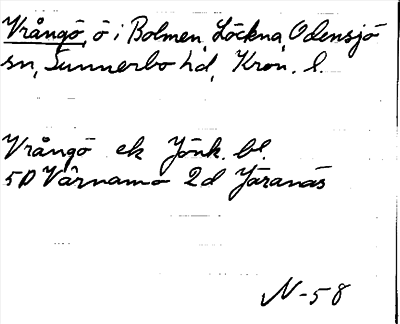 Vrångö, ö i Bolmen, Löckna, Odensjö
sn, Sunnerbo hd, Kron. l.
Vrångö ek Jönk. bl.
5D Värnamo 2d Järanäs
N-58